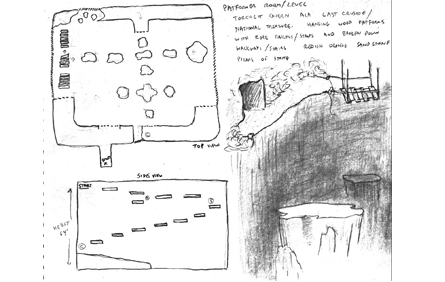 PLATFORMS ROOM/LEVEL
TORCHLIT CAVERN ALA LAST CRUSADE/
NATIONAL TREASURE. HANGING WOOD PLATFORMS
WITH ROPE RAILINGS/STAIRS AND BROKEN DOWN
WALKWAYS/STAIRS REDISH ORANGE SAND STONE
PILLARS OF STONE
TOP VIEW
SIDE VIEW
START